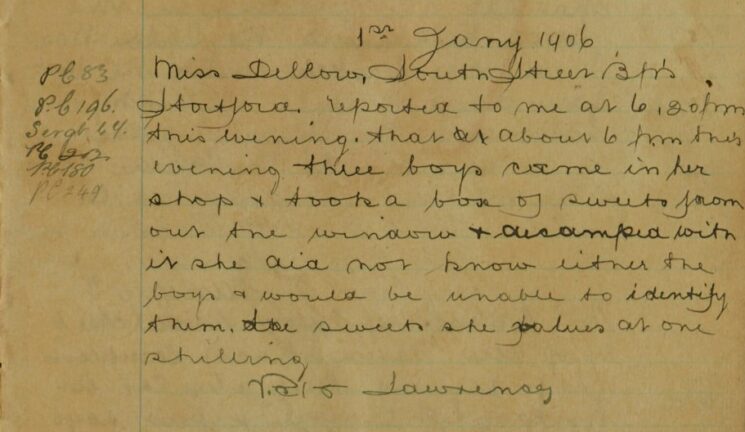 1st Jany 1906
PC 83 Miss Dellow, South Street B'p's
PC 196. Stortford. reported to me at 6.20 pm
Sergt. 44. this evening. that at about 6 pm this
PC 202 evening three boys came in her
PC 180 shop & took a box of sweets from
PC 249 out the window & decamped with
it she did not know either the
boys & would be unable to identify
them. the sweets she values at one
shilling
Lawrence